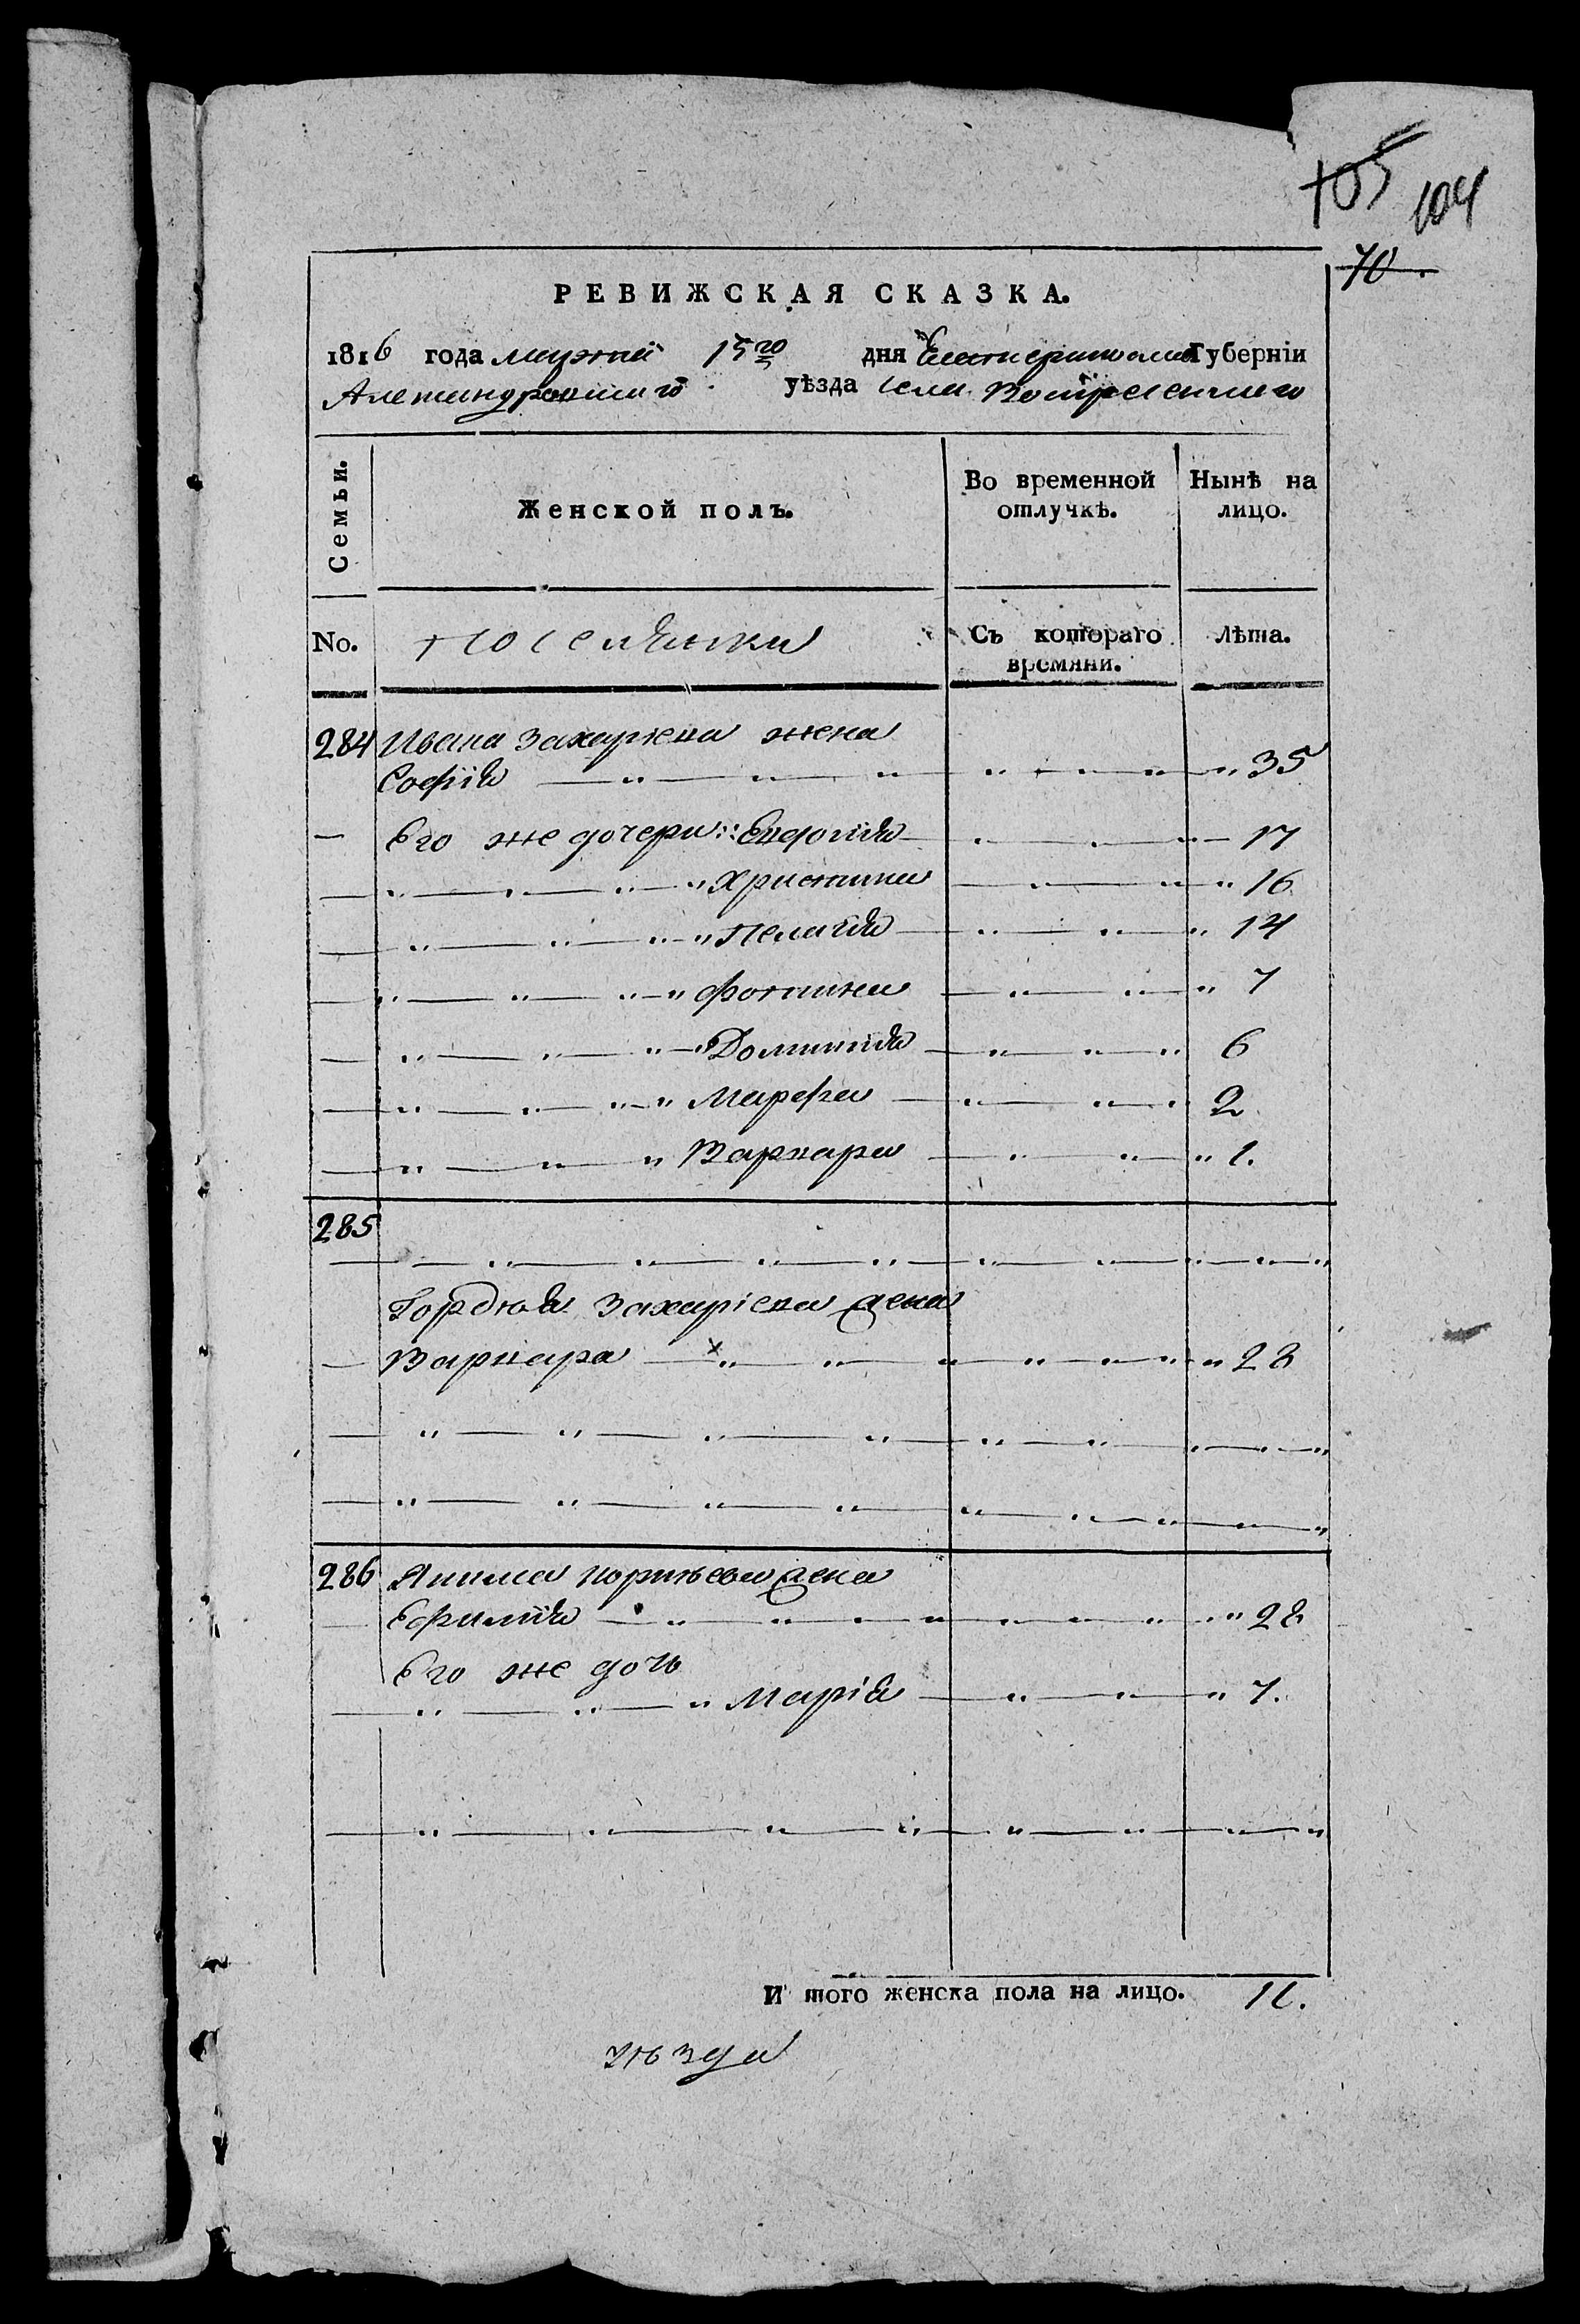 105 104
70
РЕВИЖСКАЯ СКАЗКА.
1816 года марта 15го дня Екатеринослав Губерніи
Александровскаго уѣзда села Воскресенскаго
Семьи.
Женской полъ.
Во временной отлучкѣ.
Нынѣ на лицо.
No. поселянки
Съ котораго времяни.
Лѣта.
284 Ивана Захарьева жена
Софія " " " " " " " 35
Его же дочери: Евдокия " " " 17
" " " " Христина " " " 16
" " " " Пелагія " " " 14
" " " " Фотина " " " 7
" " " " Домникія " " " 6
" " " " Марфа " " " 2
" " " Варвара " " " 1.
285
" " " " " " " " "
Гордѣя Захаріева жена
Варвара " " " " " " " 28
" " " " " " " " "
" " " " " " " " "
286 Якима жена
Ефимія " " " " " " " 28
Его же дочь
" " " Марія " " " 7.
" " " " " " " "
И того женска пола на лицо. 11.